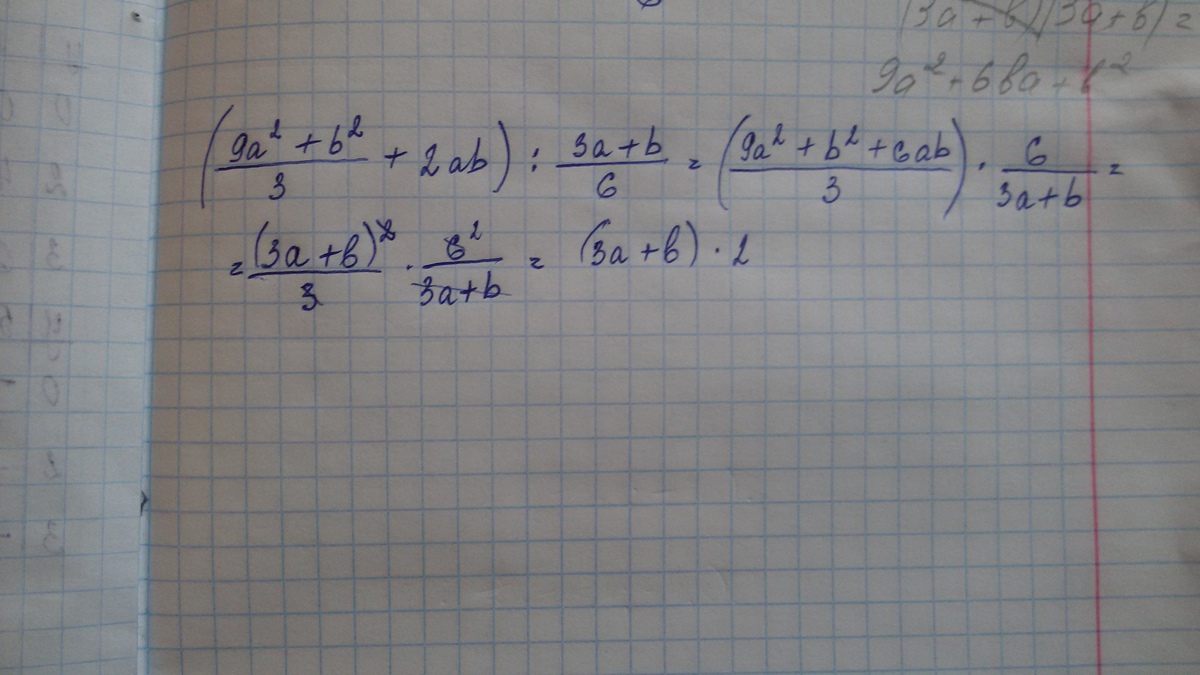 (3a+b)(3a+b)=
9a²+6ba+b²
((9a²+b²)/3 + 2ab) : (3a+b)/6 = ((9a²+b²+6ab)/3) · 6/(3a+b) =
= (3a+b)²/3 · 6²/(3a+b) = (3a+b)·2